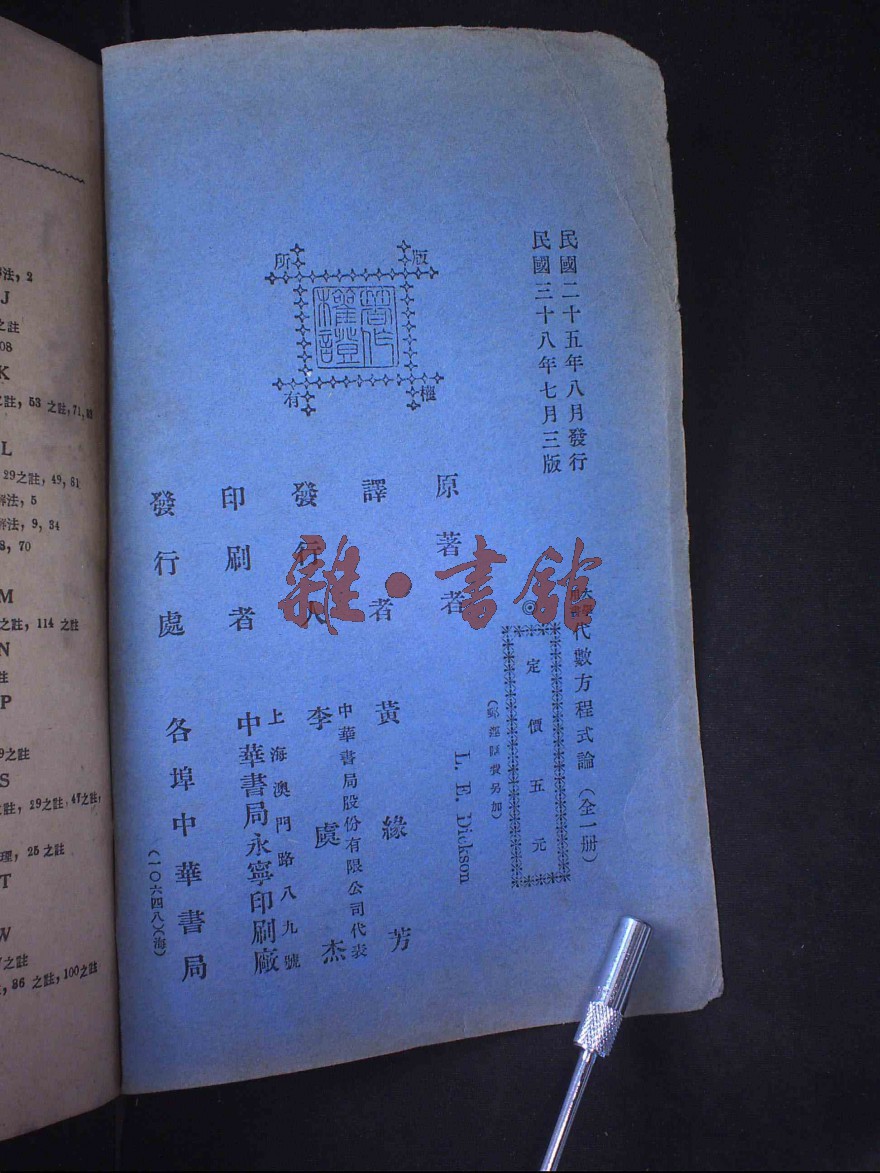 民國二十五年八月發行
民國三十八年七月三版
大學用書 代數方程式論（全一册）
◎定價五元
（郵運匯費另加）
原著者 L. E. Dickson
譯者 黃緣芳
發行人 李虞杰
中華書局股份有限公司代表
印刷者 中華書局永寧印刷廠
上海澳門路八九號
發行處 各埠中華書局
（一〇六四八）（海）
版權所有
著作權證
雜·書館
法，2
J
之註
08
K
之註，53 之註，71，
L
29之註，49，61
解法，5
解法，9，34
8，70
M
之註，114 之註
N
註
P
9之註
S
之註，29之註，47之註，
理，25 之註
T
W
之註
，86 之註，100之註